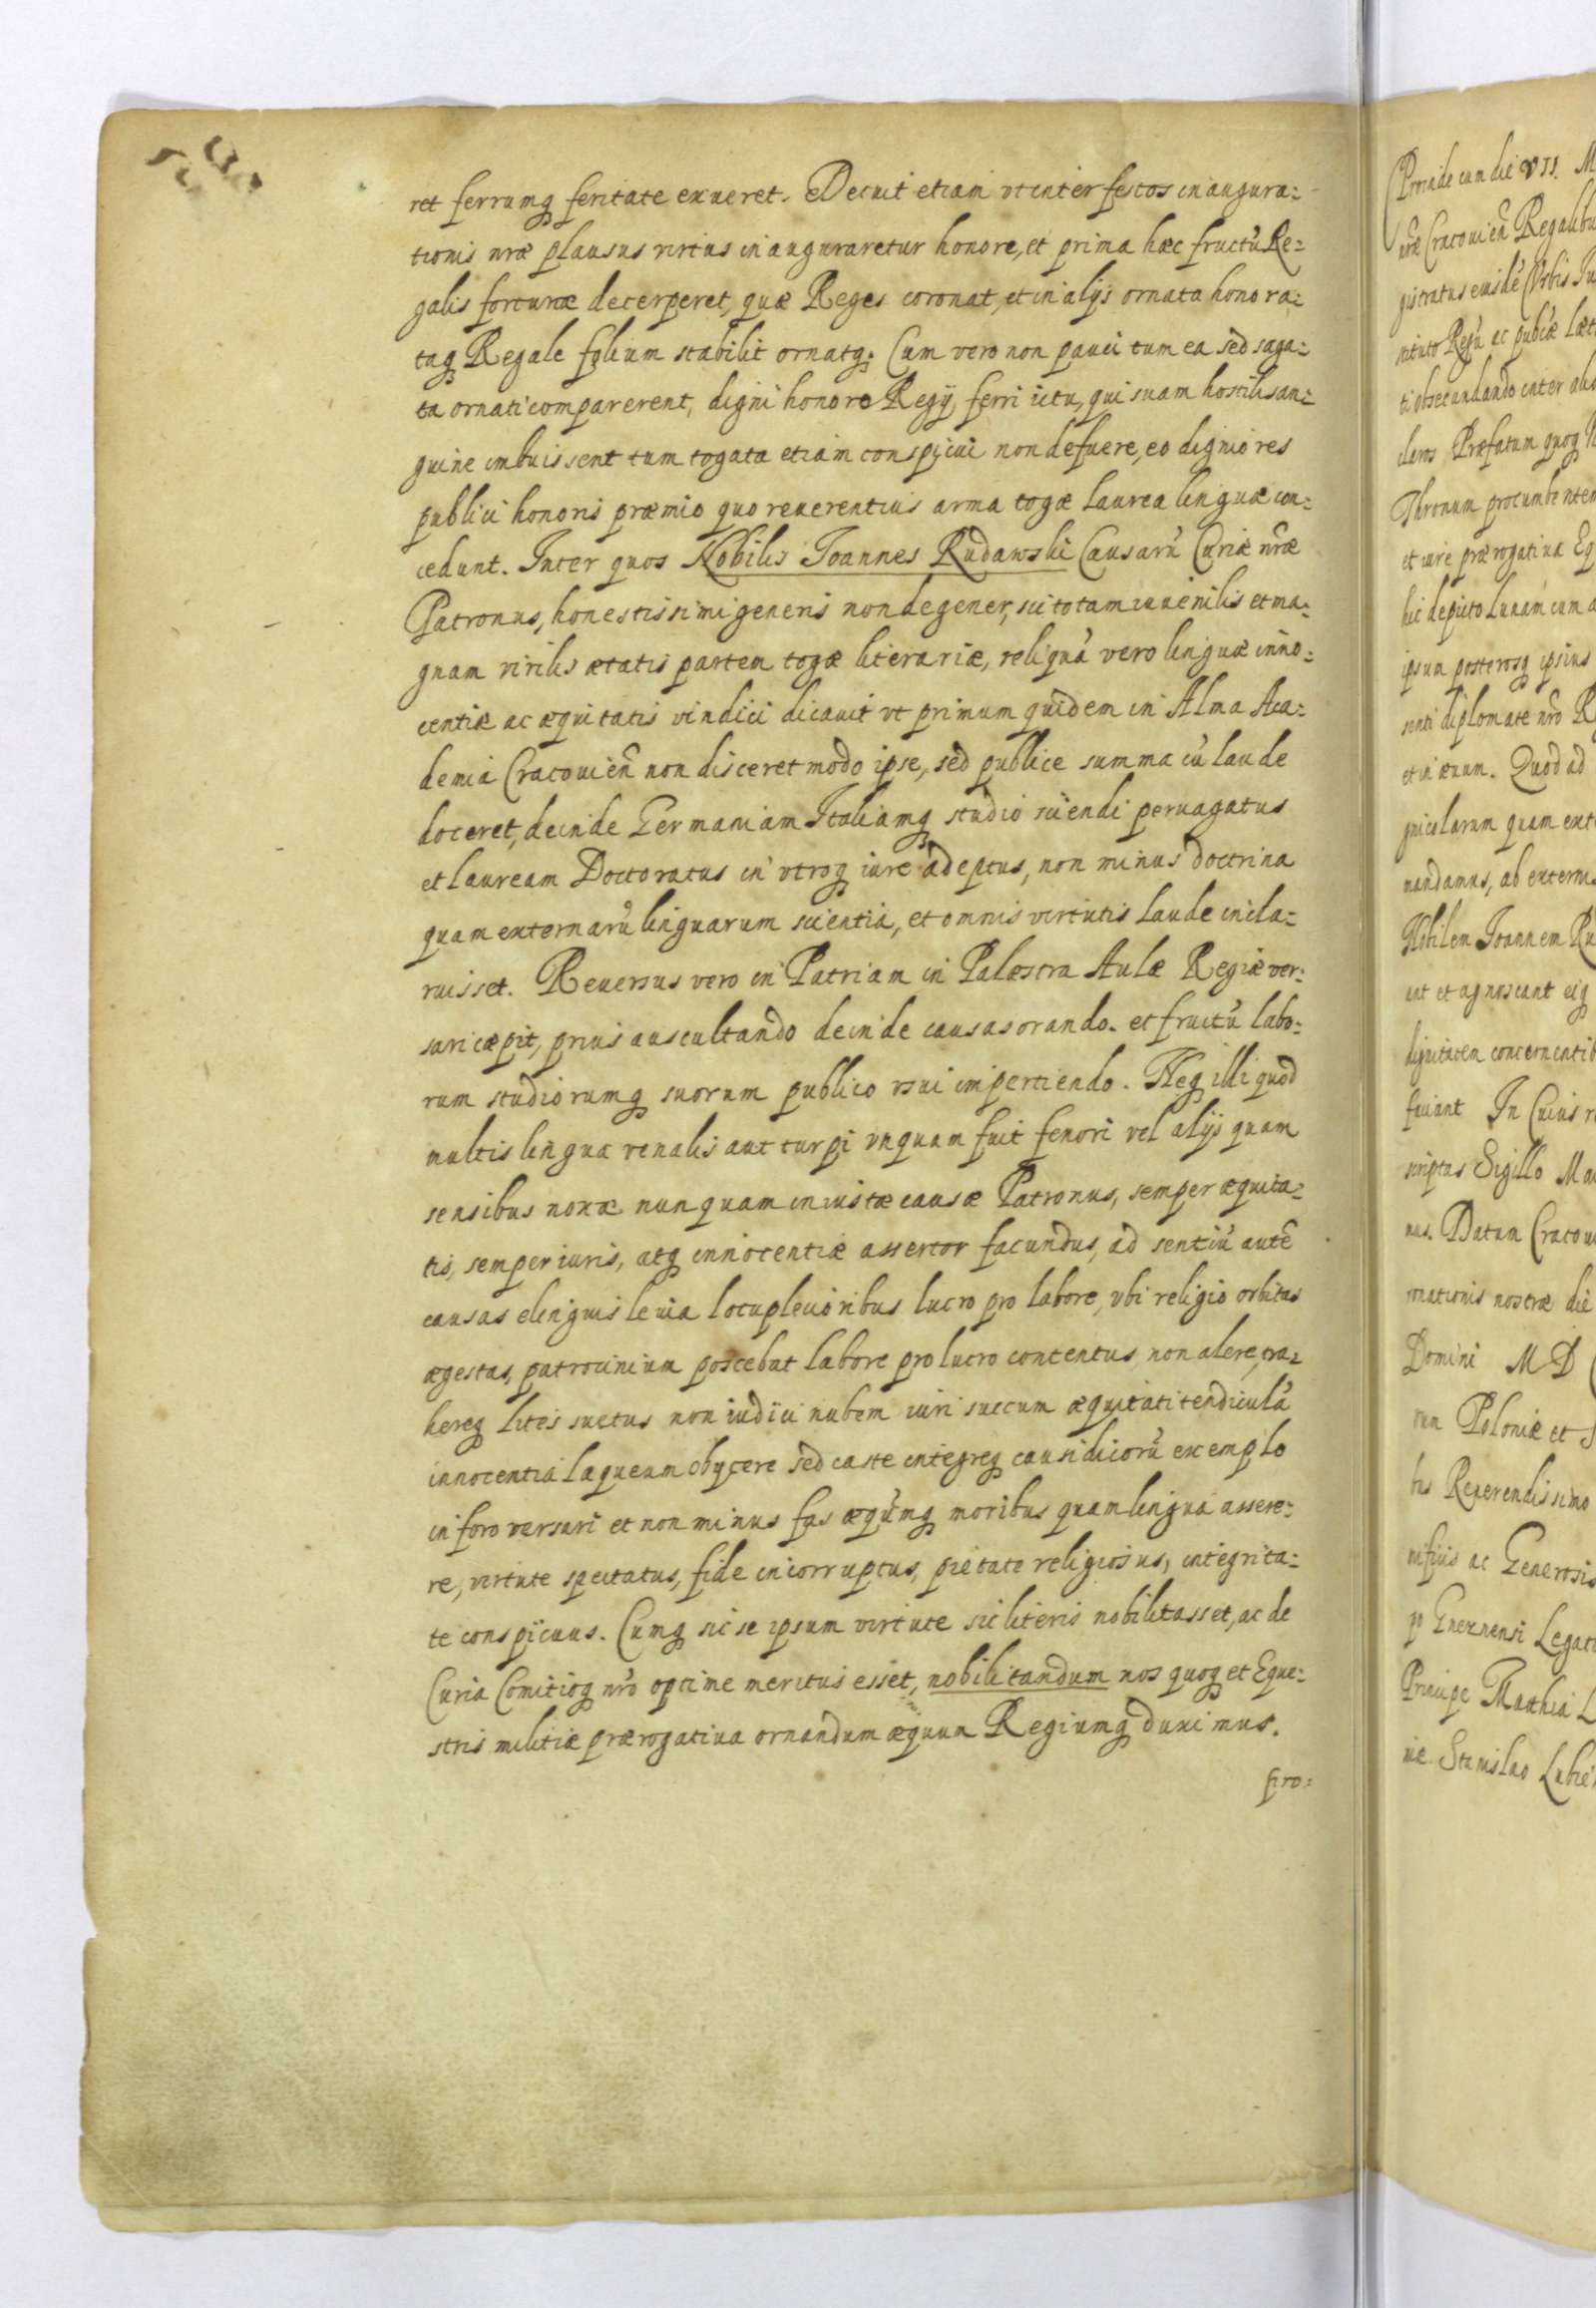 ret ferrumq feritate exueret. Decuit etiam vt inter festos inaugura=
tionis nræ plausus virtus inauguraretur honore, et prima hæc fructũ Re=
galis fortunæ decerperet, quæ Reges coronat, et in alijs ornata honora=
taq Regale folium stabilit ornatq. Cum vero non pauci tum ea sed saga=
ta ornati comparerent, digni honore Regij ferri ictu, qui suam hostili san=
guine imbuissent tum togata etiam conspicui non defuere, eo digniores
publici honoris præmio quo reuerentius arma togæ laurea linguæ con=
cedunt. Inter quos Nobilis Ioannes Rudawski Causarũ Curiæ nr̃æ
Patronus, honestissimi generis non degener, sci totam iuuenilis et ma=
gnam virilis ætatis partem togæ literariæ, reliquã vero linguæ inno=
centiæ ac æquitatis vindici dicauit vt primum quidem in Alma Aca=
demia Cracouien̄ non disceret modo ipse, sed publice summa cũ laude
doceret, deinde Germaniam Italiamq studio sciendi peruagatus
et lauream Doctoratus in vtroq iure adeptus, non minus doctrina
quam externarũ linguarum scientia, et omnis virtutis laude incla=
ruisset. Reuersus vero in Patriam in Palæstra Aulæ Regiæ ver=
sari cæpit, prius auscultando deinde causas orando. et fructũ labo=
rum studiorumq suorum publico vsui impertiendo. Neq illi quod
multis lingua venalis aut turpi vnquam fuit fenori vel alijs quam
sensibus noxæ nunquam iniustæ causæ Patronus, semper æquita=
tis, semper iuris, atq innocentiæ assertor facundus, ad sentiũ autẽ
causas elinguis leuia locupletioribus lucro pro labore, vbi religio orbitas
ægestas, patrocinium poscebat labore pro lucro contentus non alere, tra=
hereq lites suetus non iudici nubem iuri succum æquitati tendiculã
innocentiã laqueum obijcere sed caste integreq causidicorũ exemplo
in foro versari et non minus fas æqũmq moribus quam lingua assere=
re, virtute spectatus, fide incorruptus, pietate religiosus, integrita=
te conspicuus. Cumq sic se ipsum virtute sic literis nobilitasset, ac de
Curia Comitioq nr̃o optime meritus esset, nobilitandum nos quoq et Eque=
stris militiæ prærogatiua ornandum æquum Regiumq duximus.
Pro=
Proinde cum die VII. M
nr̃e Cracouien̄ Regalibu
gistratus eiusdẽ Vrbis Iu
ti obsecundando inter alio
Præfatum quoq
Thronum procumbentem
et iure prærogatiua Eq
hic depicto Lunam cum
ipsum posterosq ipsius
senti diplomate nr̃o R
et in æuum. Quod ad
gnicolarum quam ext
mandamus, ab externis
Nobilem Ioannem Ru
ent et agnoscant eiq
dignitatem concernentib
faciant In Cuius r
scriptas Sigillo Ma
mus. Datum Cracou
ronationis nostræ die
Domini MD
rum Poloniæ et S
bus Reuerendissimo
ac Generosis
Gneznensi Legat
Principe Mathia L
niæ. Stanislao Lubie